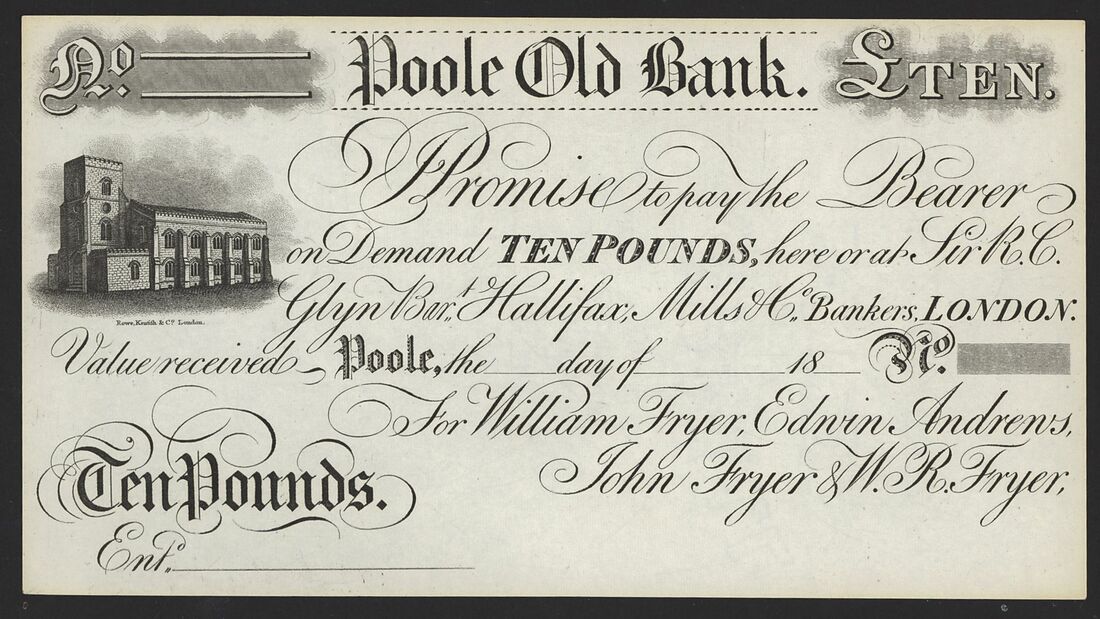 No. Poole Old Bank. £TEN.
I Promise to pay the Bearer
on Demand TEN POUNDS, here or at Sir R. C.
Glyn Bart. Hallifax, Mills & Co. Bankers, LONDON.
Rowe, Kentish & Co. London.
Value received Poole, the day of 18 No.
For William Fryer, Edwin Andrews,
John Fryer & W. R. Fryer,
Ten Pounds.
Entd.